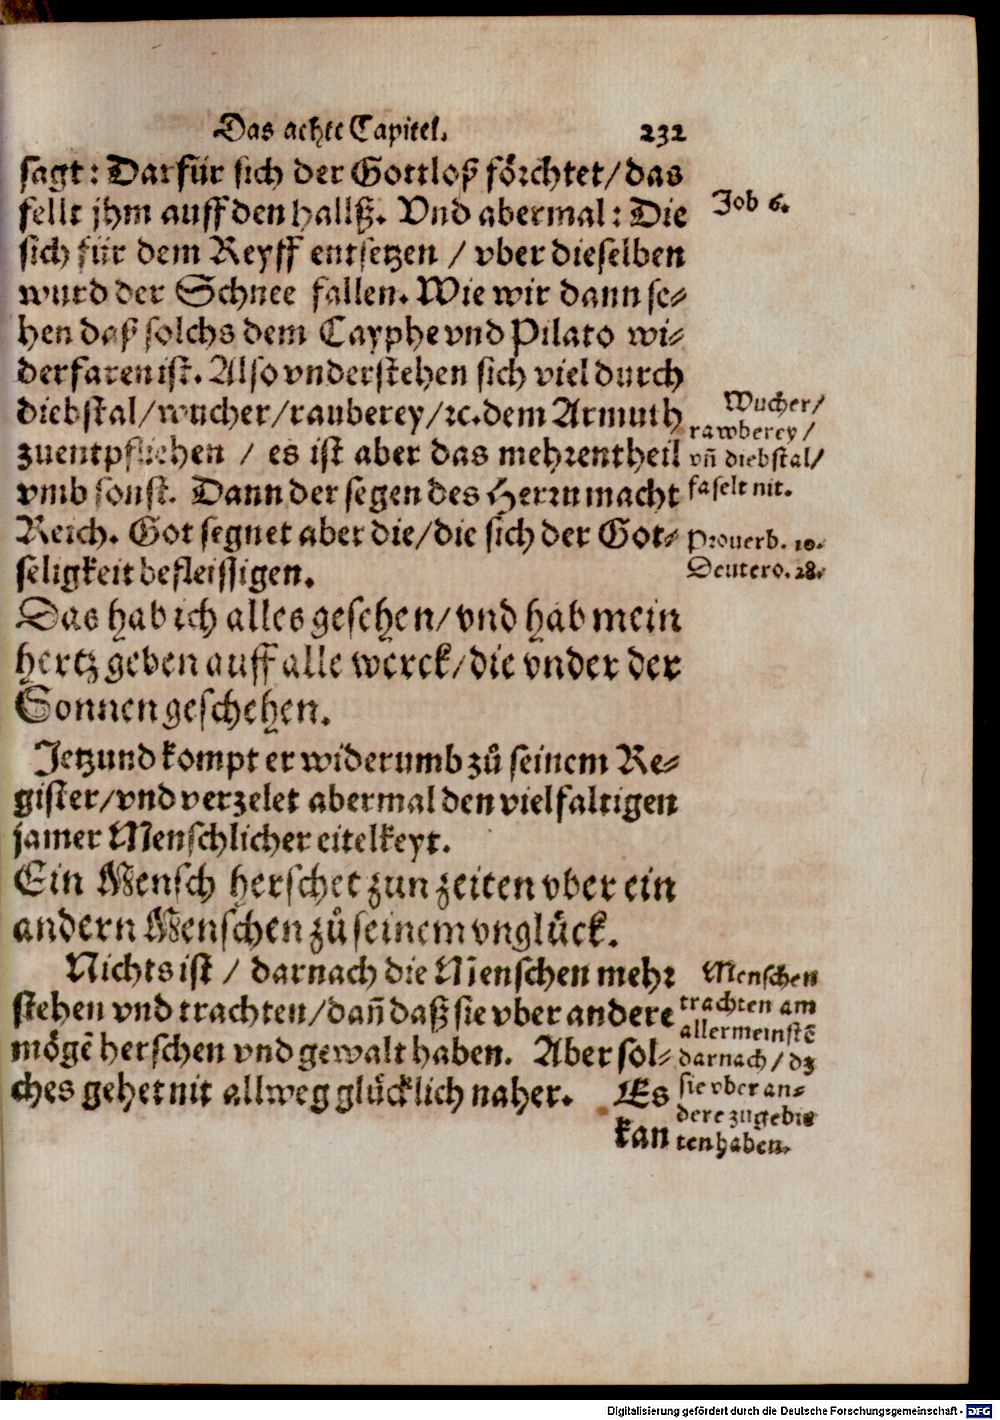 Das achte Capitel. 232
sagt: Darfür sich der Gottloß förchtet/das
fellt jhm auff den hallß. Vnd abermal: Die
Job 6.
sich für dem Reyff entsetzen / vber dieselben
wurd der Schnee fallen. Wie wir dann se-
hen daß solchs dem Cayphe vnd Pilato wi-
derfaren ist. Also vnderstehen sich viel durch
diebstal/wucher/rauberey/ꝛc. dem Armuth
zuentpfliehen / es ist aber das mehrentheil
vmb sonst. Dann der segen des Herrn macht
Reich. Got segnet aber die/die sich der Got-
seligkeit befleissigen.
Wucher/
rawberey/
vñ diebstal/
faselt nit.
Prouerb. 10.
Deutero. 28.
Das hab ich alles gesehen/vnd hab mein
hertz geben auff alle werck/die vnder der
Sonnen geschehen.
Jetzund kompt er widerumb zů seinem Re-
gister/vnd verzelet abermal den vielfaltigen
jamer Menschlicher eitelkeyt.
Ein Mensch herschet zun zeiten vber ein
andern Menschen zů seinem vnglück.
Nichts ist / darnach die Menschen mehr
stehen vnd trachten/dañ daß sie vber andere
mögẽ herschen vnd gewalt haben. Aber sol-
ches gehet nit allweg glücklich naher. Es
kan
Menschen
trachten am
allermeinstẽ
darnach/dz
sie vber an-
dere zugebie
ten haben.
Digitalisierung gefördert durch die Deutsche Forschungsgemeinschaft - DFG